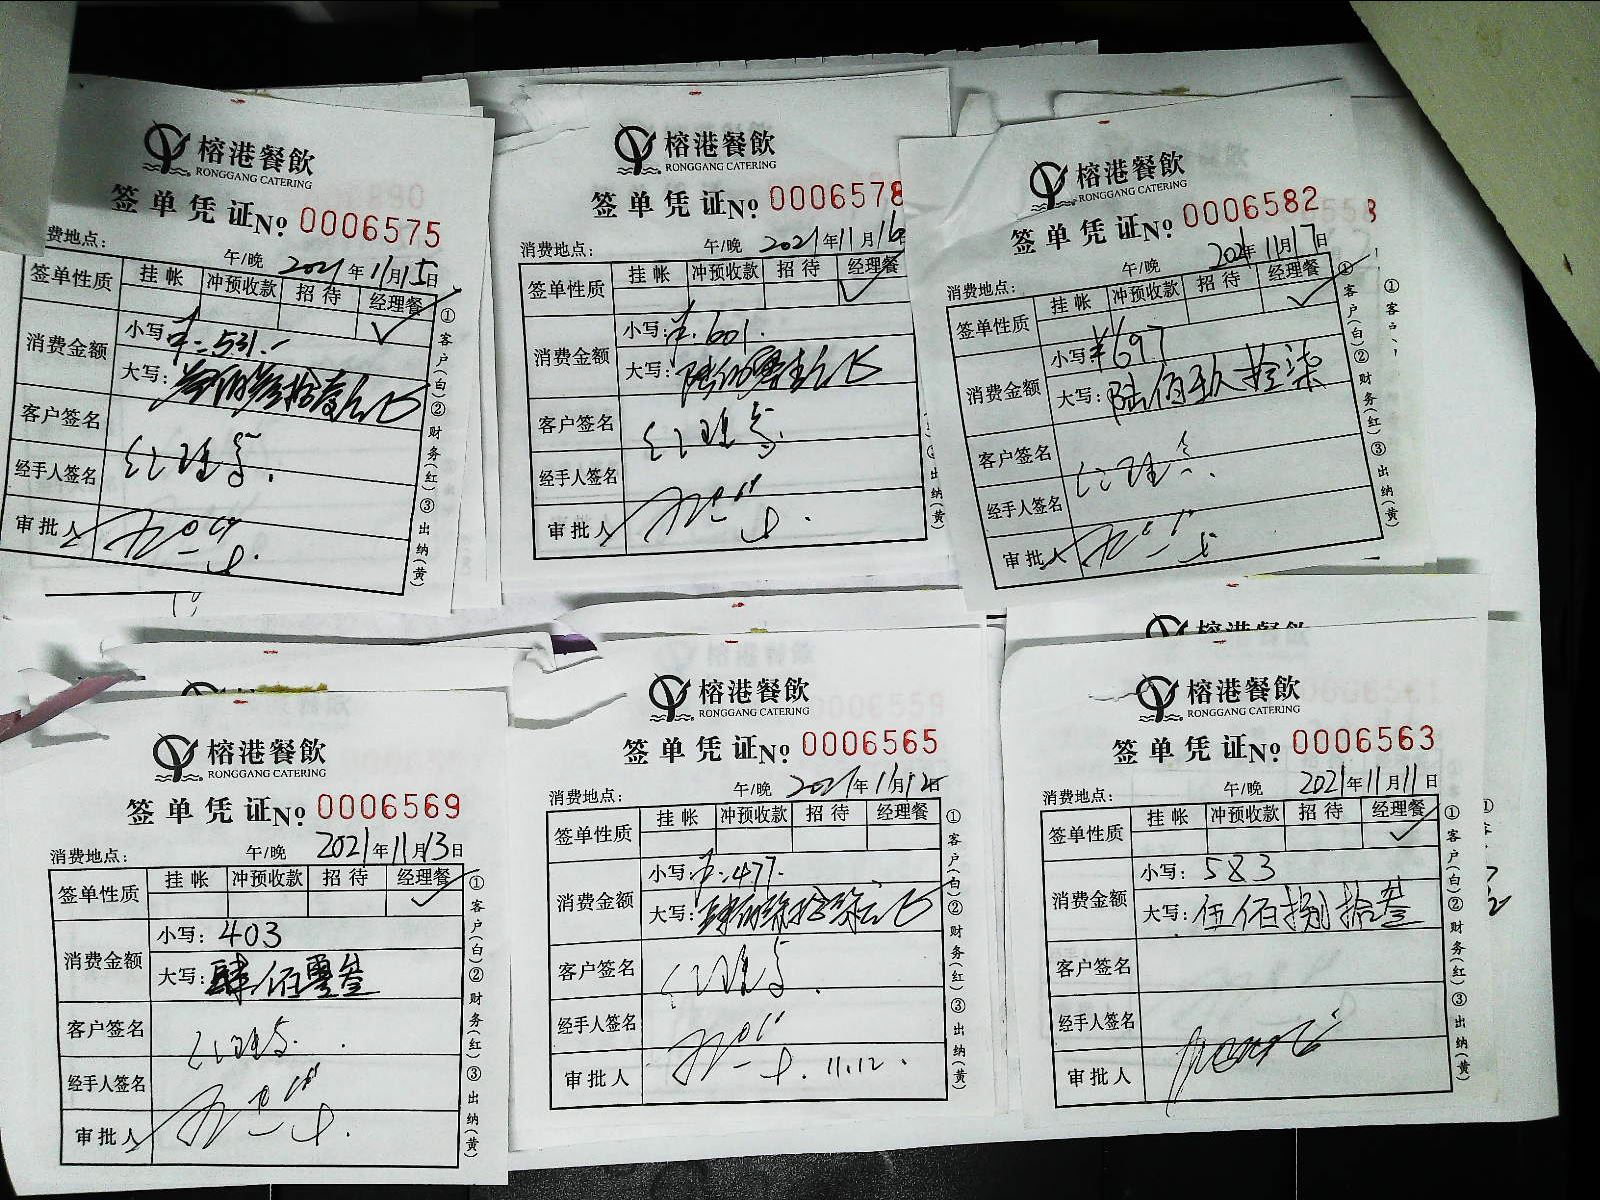 榕港餐飲
RONGGANG CATERING
签单凭证№ 0006575
费地点: 午/晚 2021年11月15日
签单性质 挂帐 冲预收款 招待 经理餐
消费金额 小写: 531.
大写: 伍佰叁拾壹元
客户签名
经手人签名
审批人
①客户(白)②财务(红)③出纳(黄)
榕港餐飲
RONGGANG CATERING
签单凭证№ 0006578
消费地点: 午/晚 2021年11月16日
签单性质 挂帐 冲预收款 招待 经理餐
消费金额 小写: 601.
大写: 陆佰零壹元
客户签名
经手人签名
审批人
纳(黄)
榕港餐飲
RONGGANG CATERING
签单凭证№ 0006582
消费地点: 午/晚 2021年11月17日
签单性质 挂帐 冲预收款 招待 经理餐
消费金额 小写: ¥697
大写: 陆佰玖拾柒
客户签名
经手人签名
审批人
①客户(白)②财务(红)③出纳(黄)
榕港餐飲
RONGGANG CATERING
签单凭证№ 0006569
消费地点: 午/晚 2021年11月13日
签单性质 挂帐 冲预收款 招待 经理餐
消费金额 小写: 403
大写: 肆佰零叁
客户签名
经手人签名
审批人
①客户(白)②财务(红)③出纳(黄)
榕港餐飲
RONGGANG CATERING
签单凭证№ 0006565
消费地点: 午/晚 2021年11月12日
签单性质 挂帐 冲预收款 招待 经理餐
消费金额 小写: 477.
大写: 肆佰柒拾柒元
客户签名
经手人签名
审批人 11.12.
①客户(白)②财务(红)③出纳(黄)
榕港餐飲
RONGGANG CATERING
签单凭证№ 0006563
消费地点: 午/晚 2021年11月11日
签单性质 挂帐 冲预收款 招待 经理餐
消费金额 小写: 583
大写: 伍佰捌拾叁
客户签名
经手人签名
审批人
①客户(白)②财务(红)③出纳(黄)